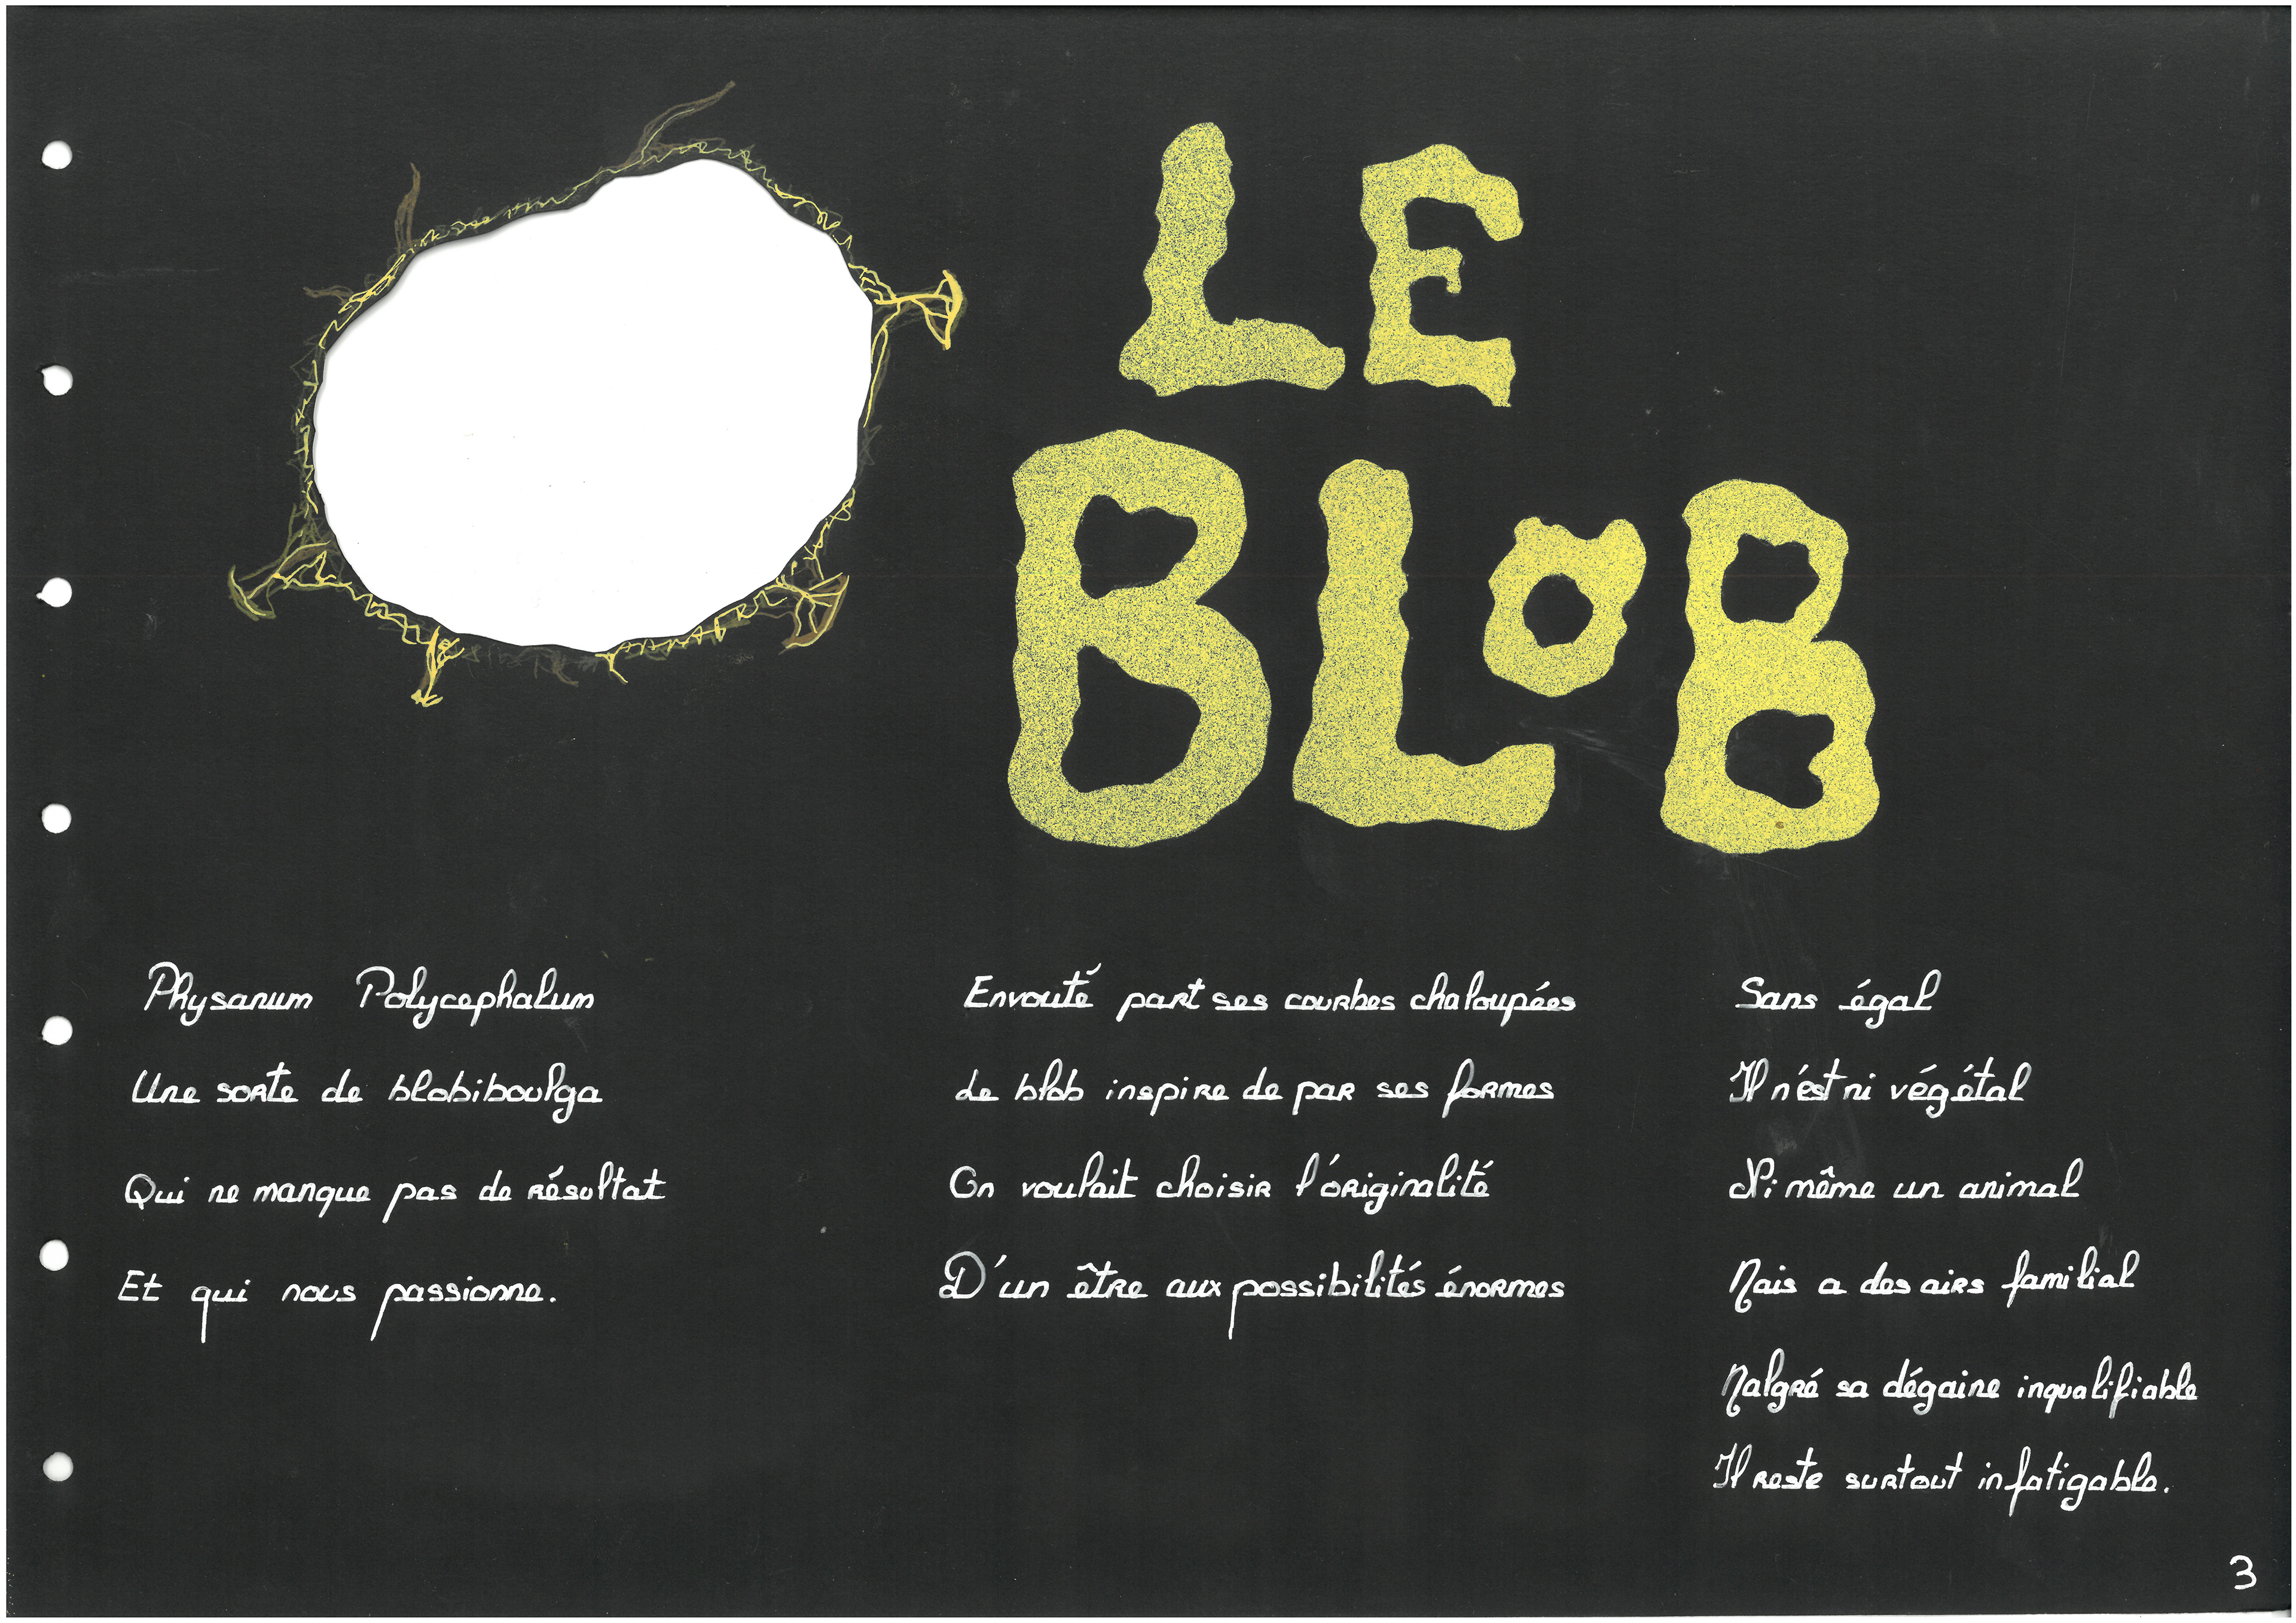 LE
BLoB
Physarum Polycephalum
Une sorte de blobiboulga
Qui ne manque pas de résultat
Et qui nous passionne.
Envouté part ses courbes chaloupées
Le blob inspire de par ses formes
On voulait choisir l'originalité
D'un être aux possibilités énormes
Sans égal
Il n'est ni végétal
Ni même un animal
Mais a des airs familial
Malgré sa dégaine inqualifiable
Il reste surtout infatigable.
3